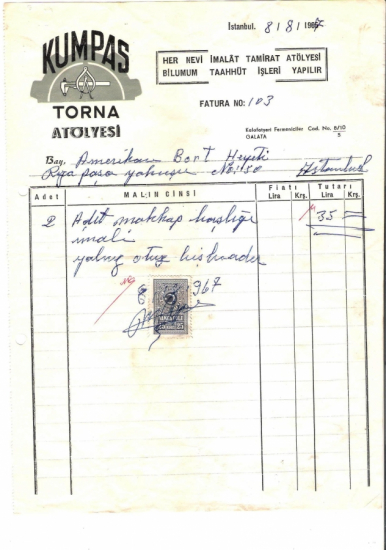 İstanbul. 8/8/1967
KUMPAS
TORNA
ATÖLYESİ
HER NEVİ İMALÂT TAMİRAT ATÖLYESİ
BİLUMUM TAAHHÜT İŞLERİ YAPILIR
FATURA NO: 103
Kalafatyeri Fermeniciler Cad. No. 8/10
GALATA 5
Bay. Amerikan Bort Heyeti
Rıza paşa yokuşu No: 50 İstanbul
Adet MALIN CİNSİ Fiatı Tutarı
Lira Krş. Lira Krş.
2 Adet matkap başlığı 35
imali
yalnız otuz beş liradır
967